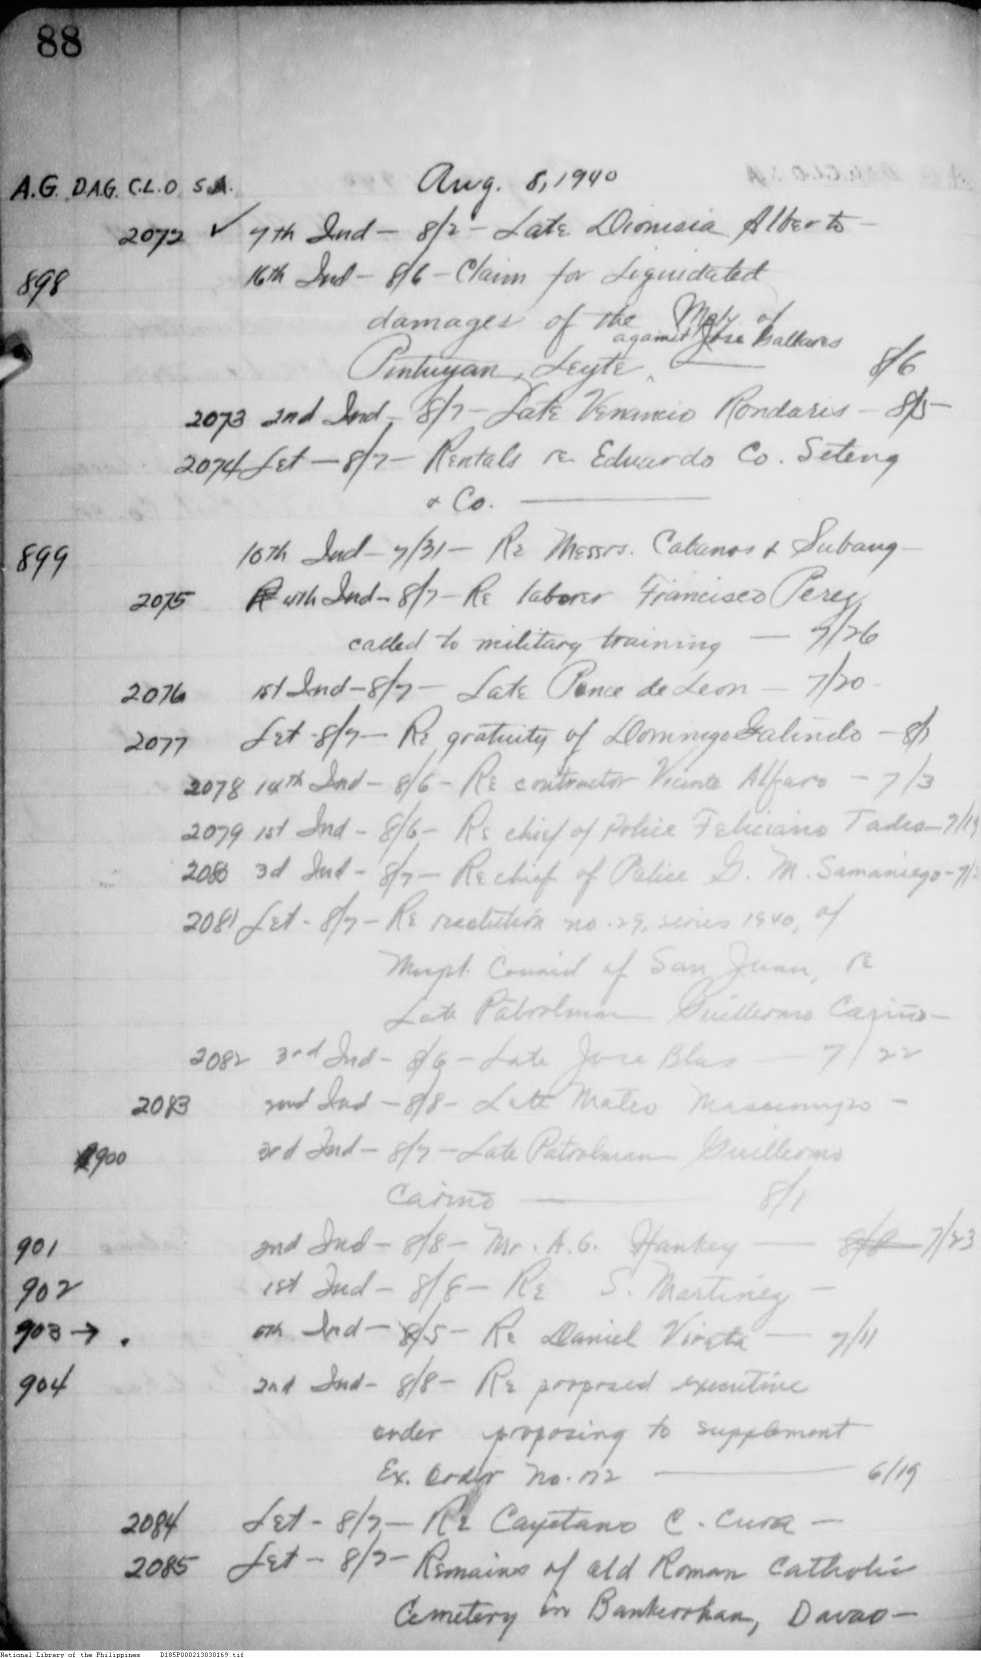 88
A.G. D.A.G. C.L.O. S.A. Aug. 8, 1940
2072 ✓ 7th Ind - 8/2 - Late Dionisia Alberto -
898 16th Ind - 8/6 - Claim for liquidated
damages of the Mpty of
against Jose Balleares
Pintuyan, Leyte, — 8/6
2073 2nd Ind - 8/7 - Late Venancio Rondaris - 8/5 -
2074 Let - 8/7 - Rentals re Eduardo Co. Seteng
& Co. —
899 10th Ind - 7/31 - Re Messrs. Cabanos & Subang -
2075 4th Ind - 8/7 - Re laborer Francisco Perez
called to military training - 7/26
2076 1st Ind - 8/7 - Late Ponce de Leon - 7/20 -
2077 Let - 8/7 - Re gratuity of Domingo Galindo - 8/1
2078 14th Ind - 8/6 - Re contractor Vicente Alfaro - 7/3
2079 1st Ind - 8/6 - Re chief of Police Feliciano Tadeo - 7/19
2080 3d Ind - 8/7 - Re chief of Police G. M. Samaniego - 7/
2081 Let - 8/7 - Re resolution no. 29, series 1940, of
Mcpl. Council of San Juan, re
Late Patrolman Guillermo Cariño -
2082 3rd Ind - 8/6 - Late Jose Blas - 7/22
2083 2nd Ind - 8/8 - Late Mateo -
900 3rd Ind - 8/7 - Late Patrolman Guillermo
Cariño — 8/1
901 2nd Ind - 8/8 - Mr. A.G. Hankey — 8/8 7/23
902 1st Ind - 8/8 - Re S. Martinez -
903 → . Ind - 8/5 - Re Daniel Virata - 7/11
904 2nd Ind - 8/8 - Re proposed executive
order proposing to supplement
Ex. Order No. 172 — 6/19
2084 Let - 8/7 - Re Cayetano C. Cura -
2085 Let - 8/7 - Remains of old Roman Catholic
Cemetery in Bankerohan, Davao -
National Library of the Philippines D185P000213030169.tif